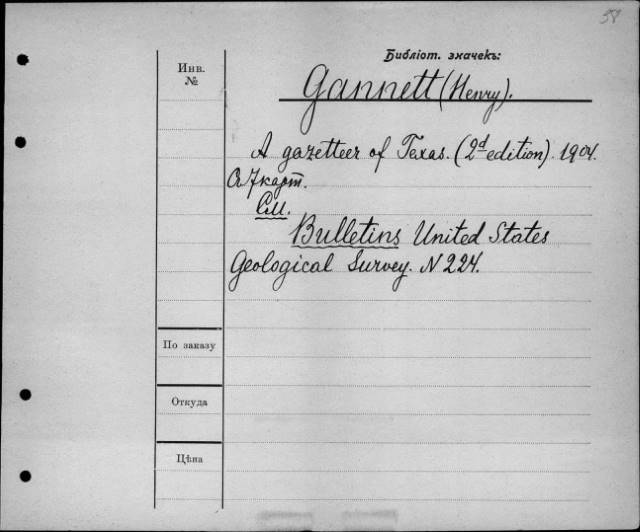 58
Библіот. значекъ:
Инв.
№
Gannett (Henry).
A gazetteer of Texas. (2d edition). 1904.
С 7 карт.
См.
Bulletins United States
Geological Survey. N 224.
По заказу
Откуда
Цѣна